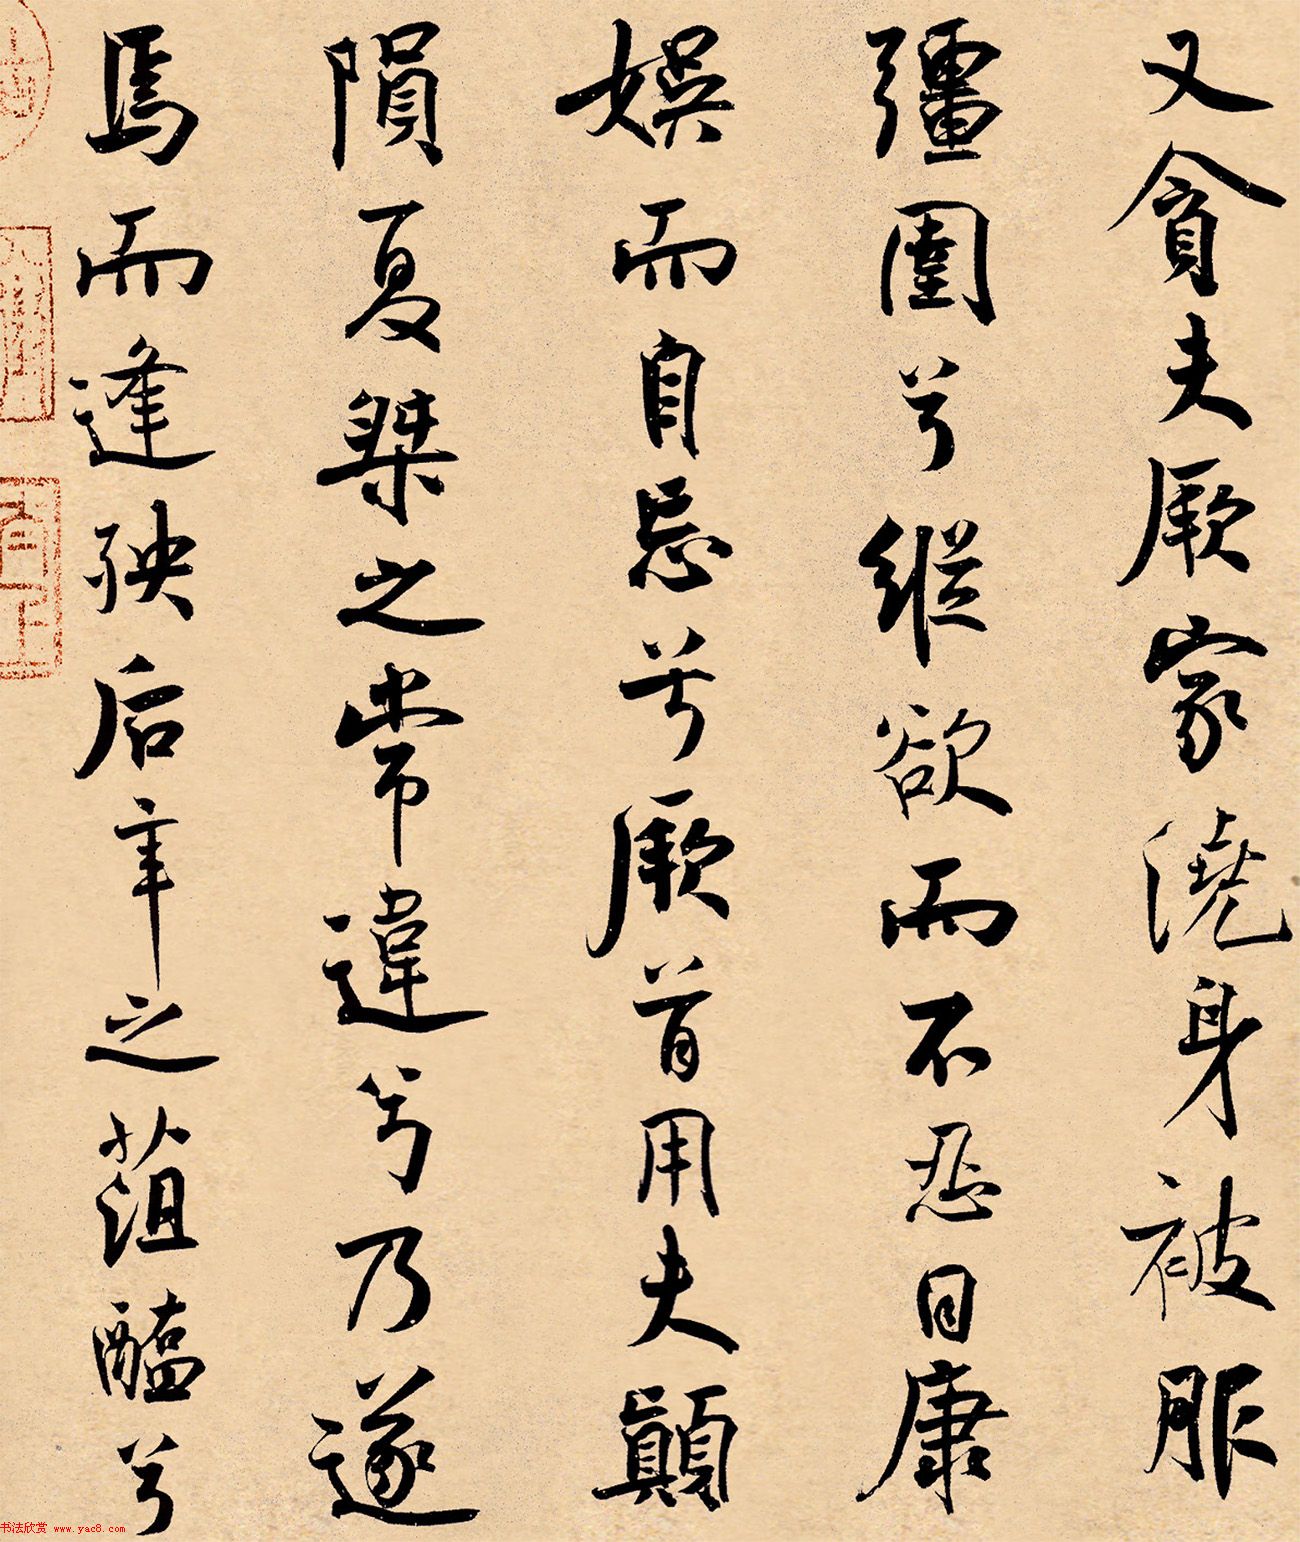 又貪夫厥家澆身被服
彊圉兮縱欲而不忍日康
娛而自忘兮厥首用夫顛
隕夏桀之常違兮乃遂
焉而逢殃后辛之菹醢兮
书法欣赏 www.yac8.com